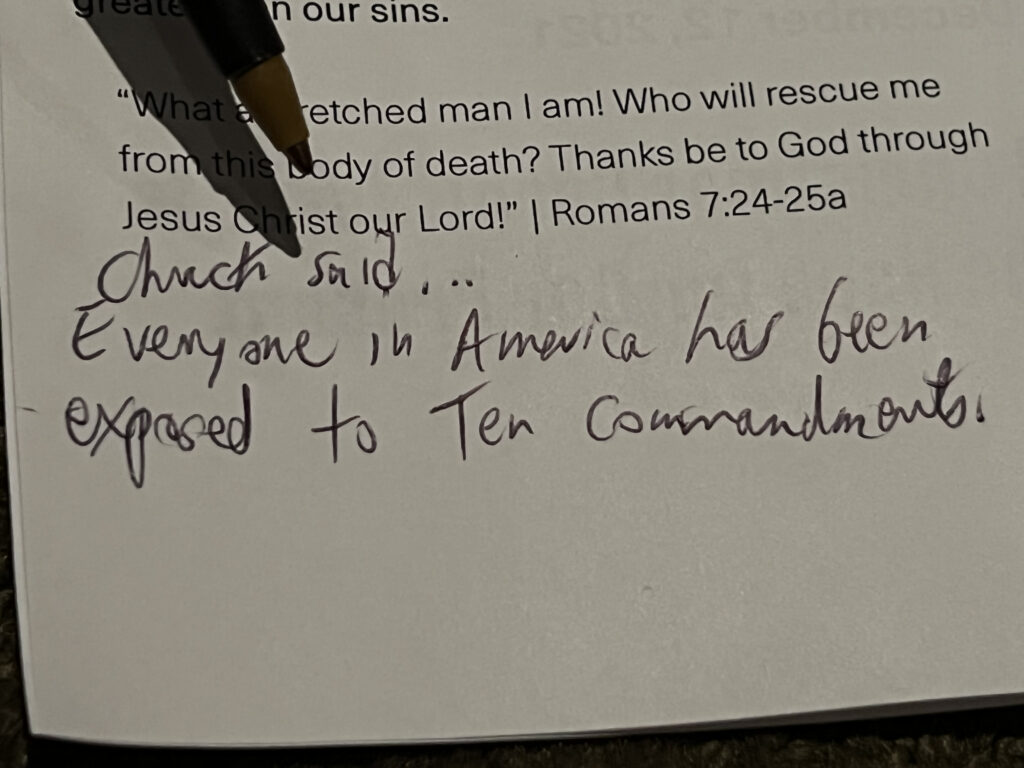 our sins.
“What a wretched man I am! Who will rescue me
from this body of death? Thanks be to God through
Jesus Christ our Lord!” | Romans 7:24-25a
said...
Everyone in America has been
exposed to Ten Commandments.